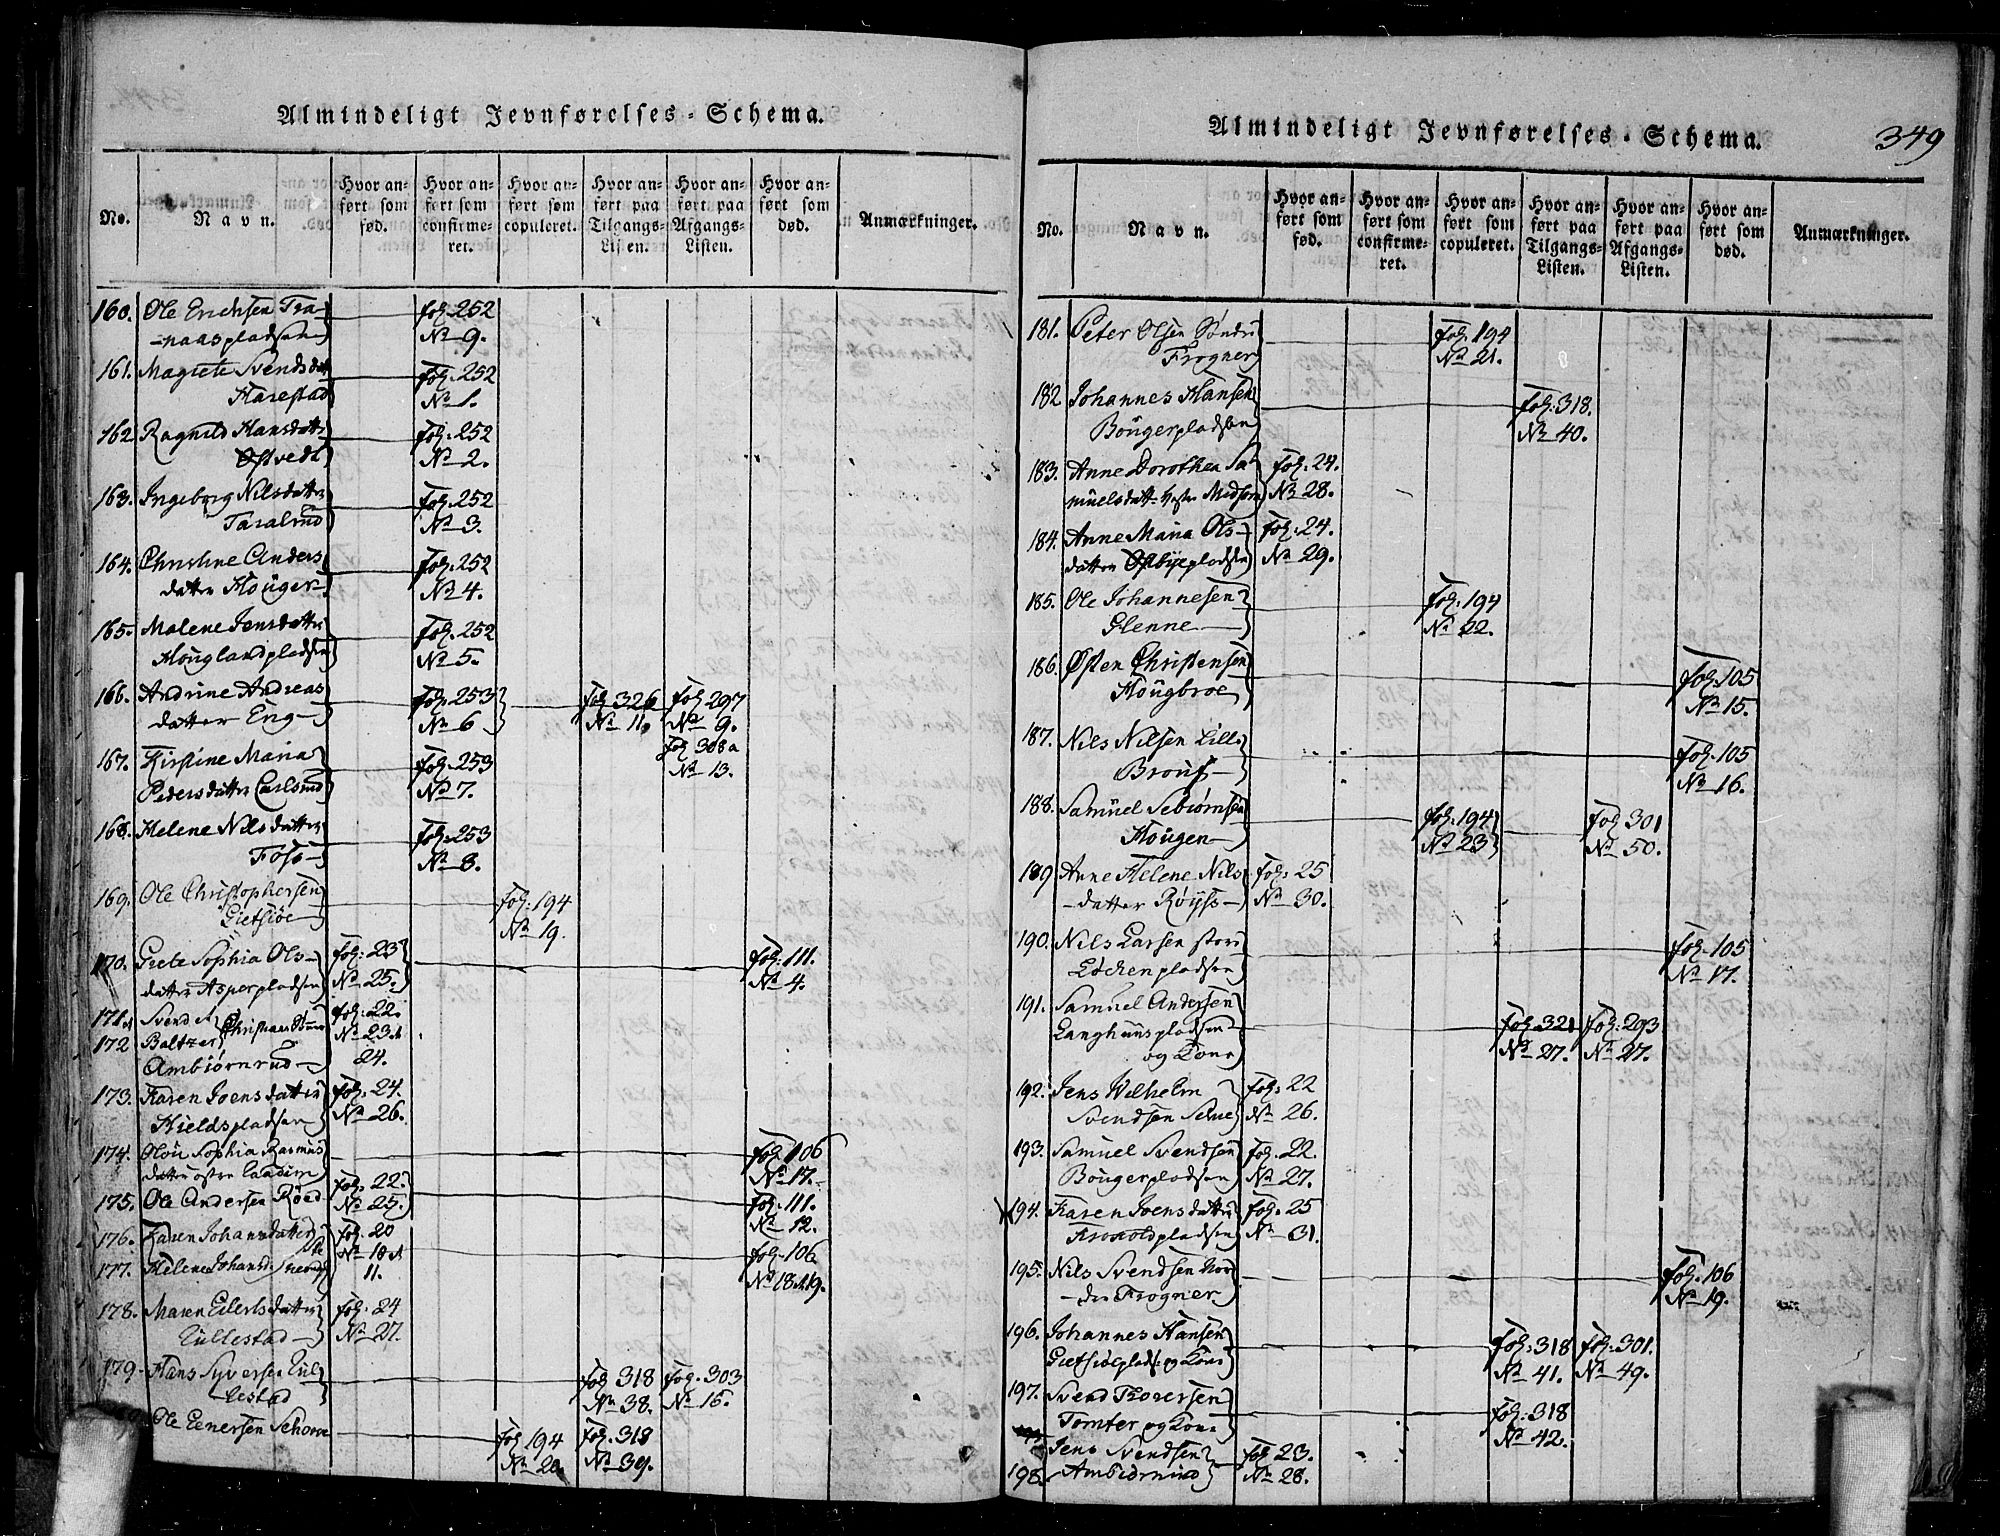 Almindeligt Jevnførelses-Schema.
No.
Navn.
Hvor anført som fød.
Hvor anført som confirmeret.
Hvor anført som copuleret.
Hvor anført paa Tilgangs-Listen.
Hvor anført paa Afgangs-Listen.
Hvor anført som død.
Anmærkninger.
160. Ole Erichsen Tra- fol. 252
-naaspladsen No 9.
161. Magrete Svendsdat fol. 252
Harestad No 1.
162 Ragnild Hansdatter fol. 252
Østvedt No 2.
163. Ingeborg Nilsdatter fol. 252
Taralrud No 3.
164. Christine Anders fol. 252
datter Houger No 4.
165. Malene Jensdatter fol. 252
Houglandpladsen No 5.
166. Andrine Andreas fol. 253 fol 326 fol 297
datter Eng No 6 No 11. No 9.
fol 308a
No 13.
167. Kirstine Maria fol. 253
Pedersdatter Carlsrud No 7.
168. Helene Nilsdatter fol. 253
Foss No 8.
169. Ole Christophersen fol. 194
Gietsiøe No 19.
170. Grete Sophia Ols- fol. 23 fol. 111.
datter Asperpladsen No 25. No 4.
171. Svend fol. 22.
172 Baltzer No 23.
Ambiørnrud 24.
173. Karen Joensdatter fol. 24.
Kieldspladsen No 26.
174. Olou Sophia Rasmus fol. 106
datter No 17.
175. Ole Andersen Röed fol. 22. No 25. fol. 111. No 12.
176. Karen Johannsdatter fol. 20 No 10
177. Helene Johansd 11. fol. 106 No 18 19.
178. Maren Eilertsdatter fol. 24
Tullestad No 27.
179. Hans Syversen Tul fol 318 fol. 303
lestad No 38. No 16.
Ole Eenersen fol 194 fol. 318
No 20 No 39.
Almindeligt Jevnførelses-Schema.
349
No.
Navn.
Hvor anført som fød.
Hvor anført som confirmeret.
Hvor anført som copuleret.
Hvor anført paa Tilgangs-Listen.
Hvor anført paa Afgangs-Listen.
Hvor anført som død.
Anmærkninger.
181. Peter Olsen Søndre fol. 194
Frogner No 21.
182 Johannes Hansen fol. 318.
Bougerpladsen No 40.
183. Anne Dorothea Sa fol. 24.
muelsdatt. No 28.
184. Anne Maria Ols- fol. 24.
datter Østbyepladsen No 29.
185. Ole Johannesen fol. 194
Glenne No 22.
186. Østen Christensen fol. 105
Hougbroe No 15.
187. Nils Nilsen Lille fol. 105
No 16.
188. Samuel Sebiørnsen fol. 194 fol 301
Hougen No 23 No 50.
189 Anne Helene Nils fol. 25
-datter Røyss No 30.
190. Nils Larsen store fol. 105
Løckenpladsen No 17.
191. Samuel Andersen fol. 321 fol. 293
Langhuuspladsen No 27. No 27.
og Kone
192. Jens Wilhelm fol. 22
Svendsen No 26.
193. Samuel Svendsen fol. 22.
Bougerpladsen No 27.
194. Karen Joensdatter fol. 25
Froxoldpladsen No 31.
195. Nils Svendsen Nor fol. 106
-dre Frogner No 19.
196. Johannes Hansen fol. 318 fol. 301.
Gietsiøepladse og Kone No 41. No 49.
197. Svend Thoresen fol. 318
Tomter og Kone No 42.
Jens Svendsen fol. 23.
198. Ambiørnrud No 28.